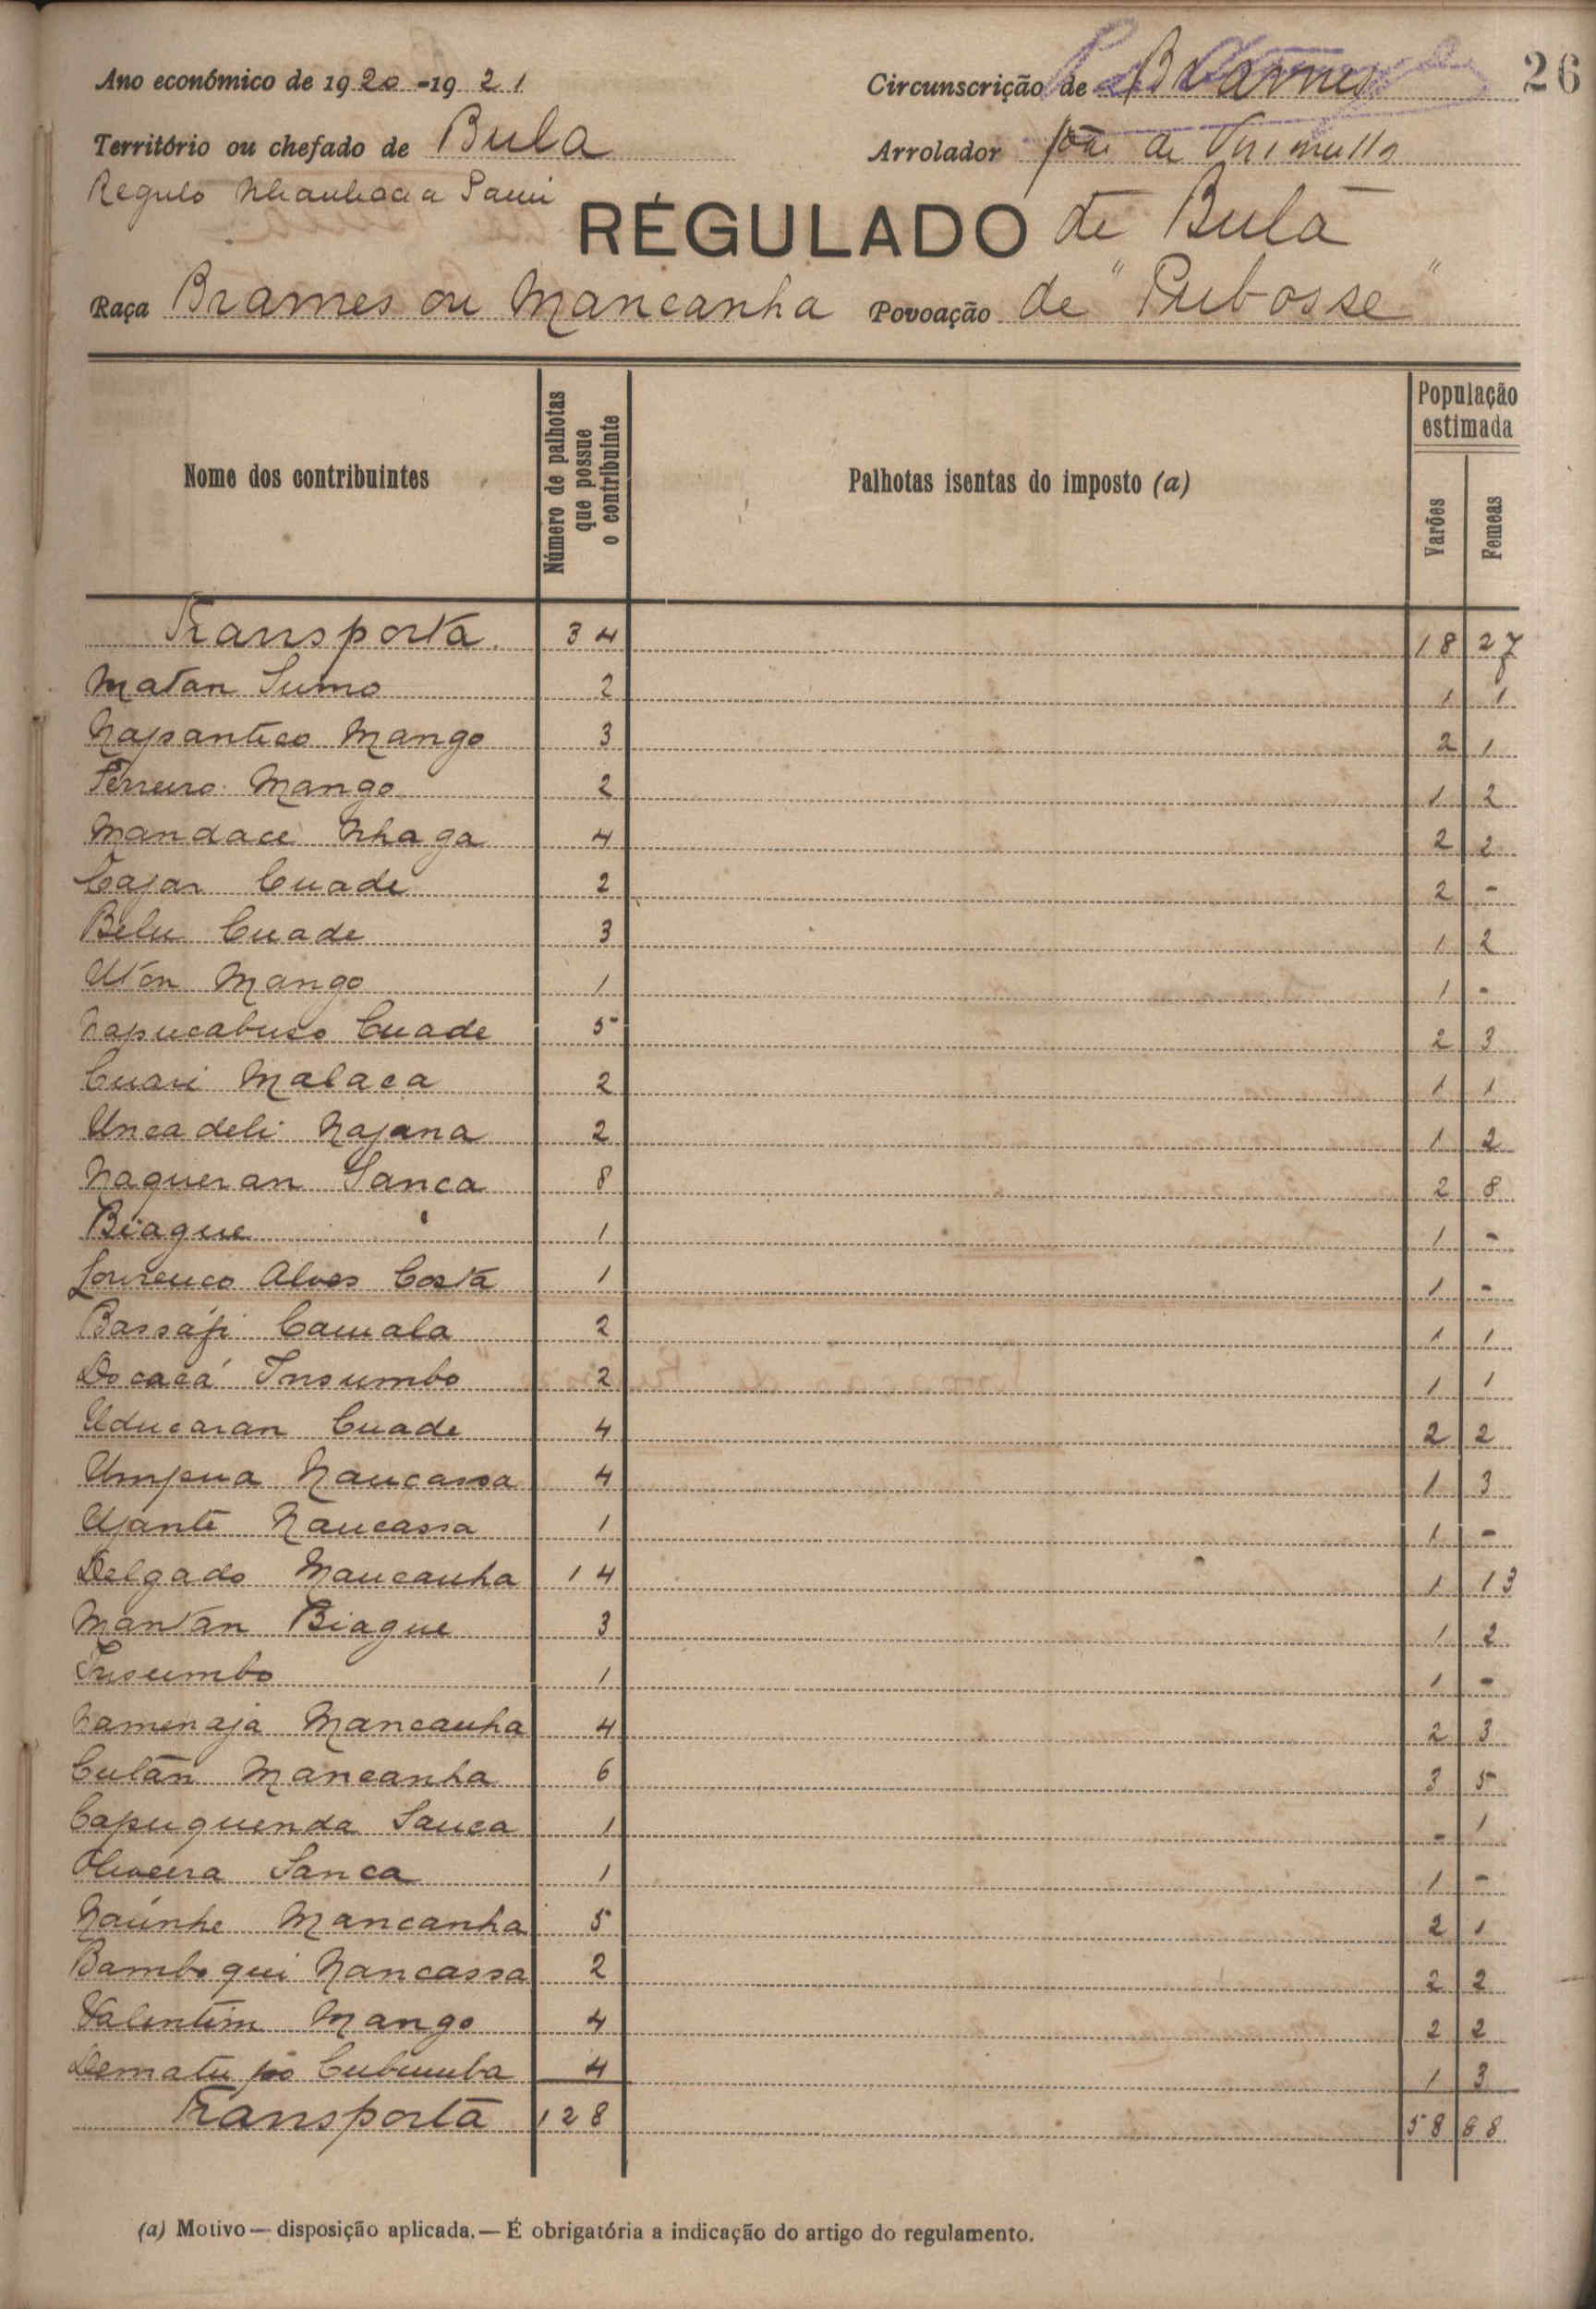 26
Ano económico de 1920-1921 Circunscrição de Brames
Território ou chefado de Bula Arrolador João de
Regulo
RÉGULADO de Bula
Raça Brames ou Mancanha Povoação de "Pubosse"
Nome dos contribuintes Número de palhotas que possue o contribuinte Palhotas isentas do imposto (a) População estimada Varões Femeas
Transporta 34 18 27
Matan Sumo 2 1 1
Napantico Mango 3 2 1
Ferreiro Mango 2 1 2
Mandace Nhaga 4 2 2
Cajar Cuade 2 2 -
Belu Cuade 3 1 2
Utón Mango 1 1 -
Napucabuco Cuade 5 2 3
Cuari Malaca 2 1 1
Uncadeli Najana 2 1 2
Naqueran Sanca 8 2 8
Biague 1 1 -
Lourenco Alves Costa 1 1 -
Bassáfi Camala 2 1 1
Docacá Insumbo 2 1 1
Uducaran Cuade 4 2 2
Umpua Nancassa 4 1 3
Ujante Nancassa 1 1 -
Delgado Mancanha 14 1 13
Mantan Biague 3 1 2
Insumbo 1 1 -
Namenaja Mancanha 4 2 3
Culán Mancanha 6 3 5
Capuquenda Sanca 1 - 1
Oliveira Sanca 1 1 -
Naúnhe Mancanha 5 2 1
Bamboqui Nancassa 2 2 2
Valentim Mango 4 2 2
Dematu 4 1 3
Transporta 128 58 88
(a) Motivo — disposição aplicada. — É obrigatória a indicação do artigo do regulamento.